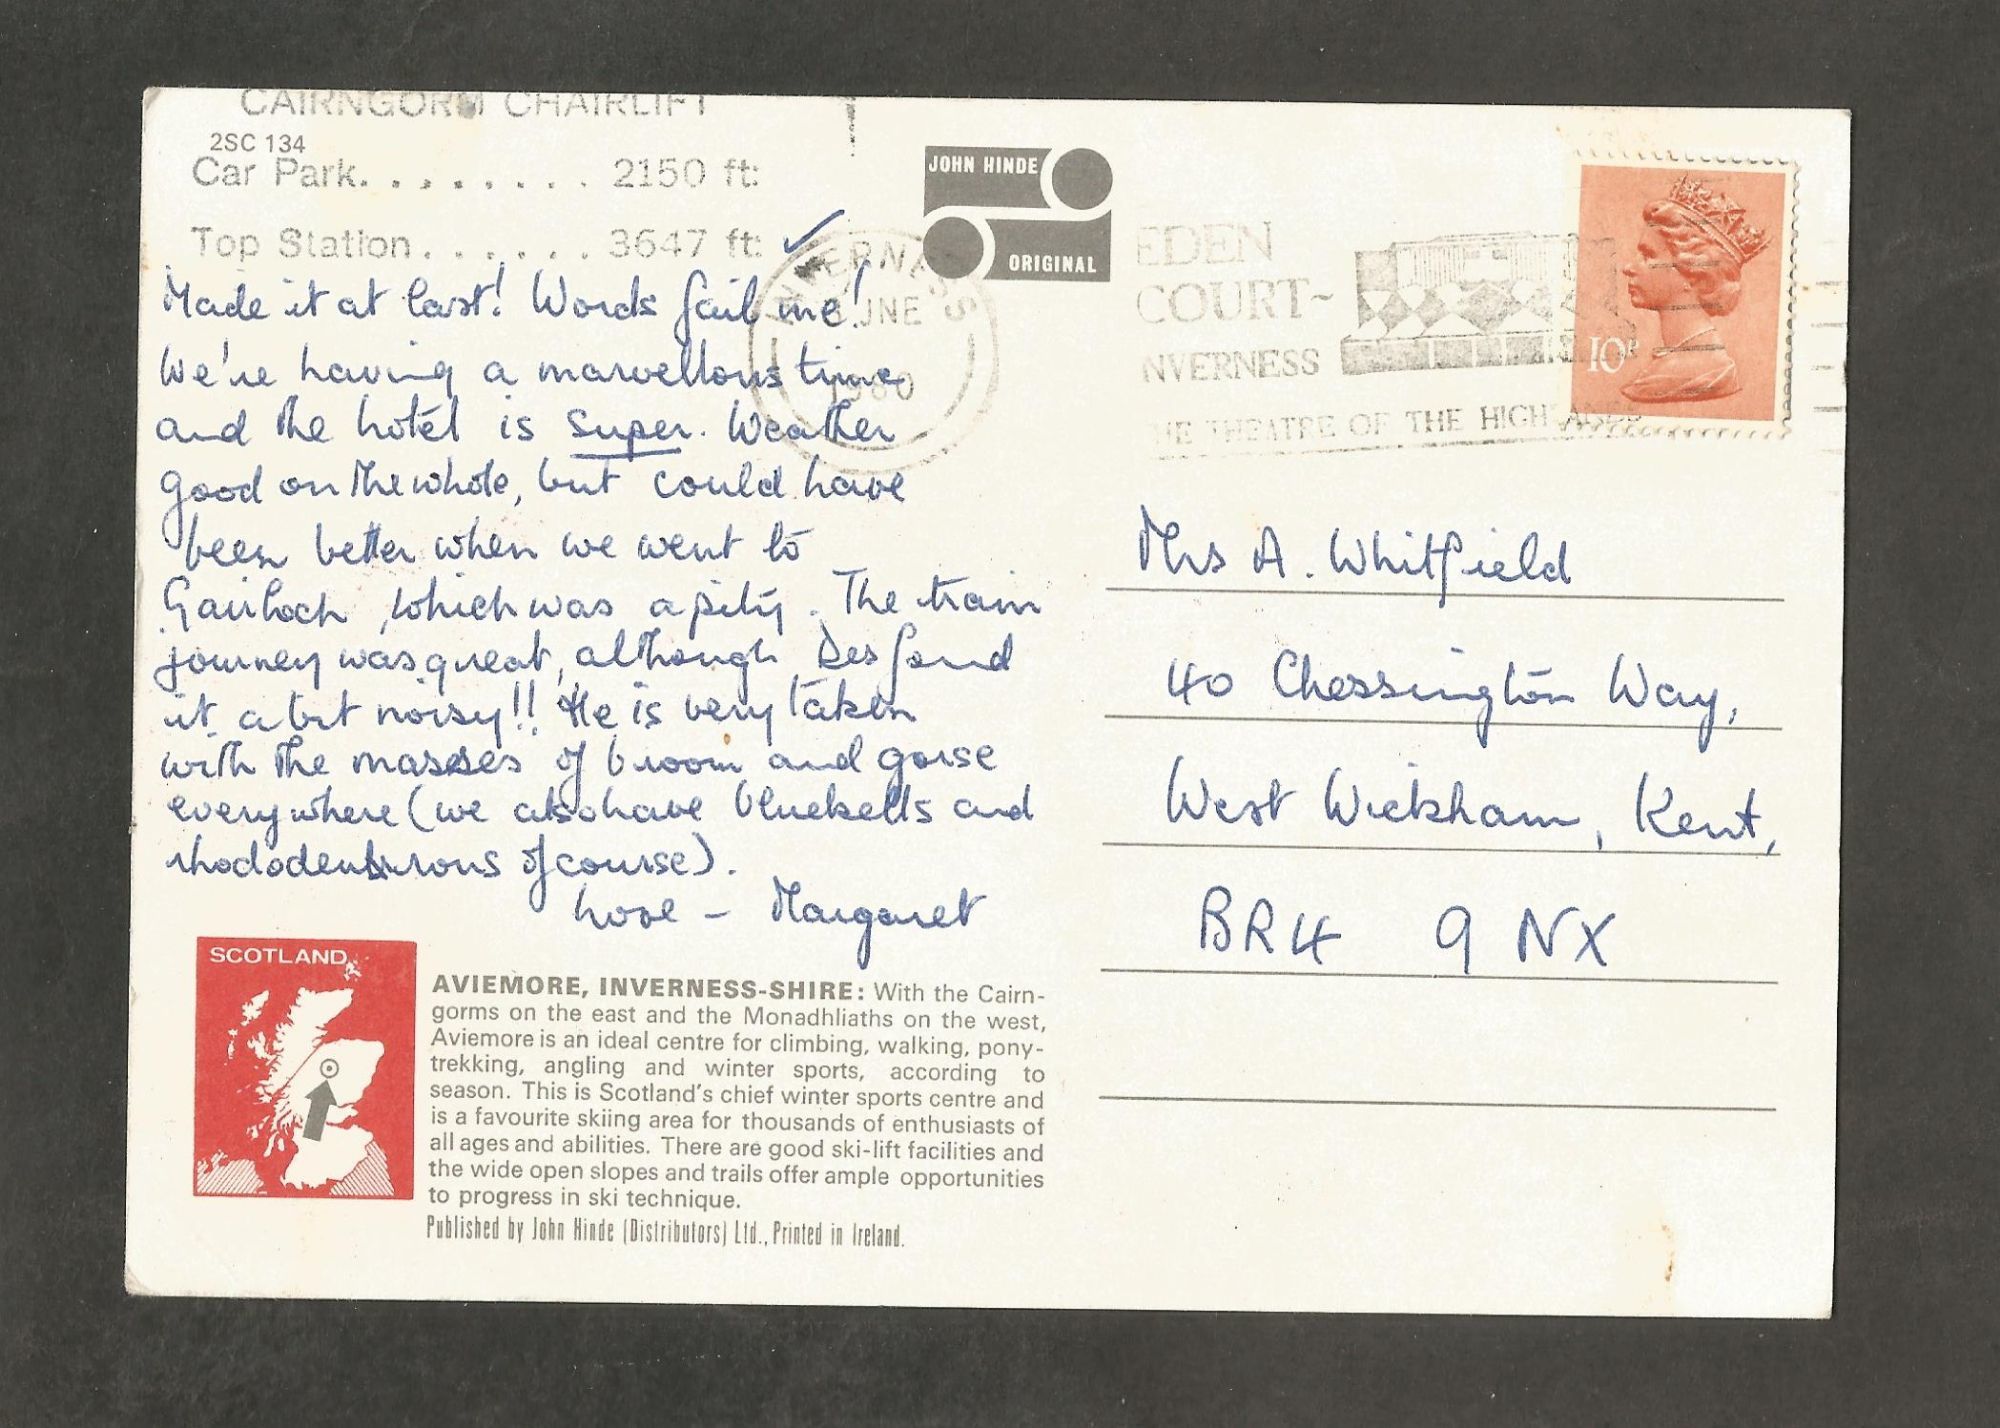 CAIRNGORM CHAIRLIFT
2SC 134
Car Park. . . . . . . . . 2150 ft:
Top Station . . . . . . 3647 ft: ✓
Made it at last! Words fail me!
We're having a marvellous time
and the hotel is super. Weather
good on the whole, but could have
been better when we went to
Gairloch, which was a pity. The train
journey was great, although Des found
it a bit noisy!! He is very taken
with the masses of broom and gorse
everywhere (we also have bluebells and
rhododendrons of course).
Love - Margaret
SCOTLAND
AVIEMORE, INVERNESS-SHIRE: With the Cairn-
gorms on the east and the Monadhliaths on the west,
Aviemore is an ideal centre for climbing, walking, pony-
trekking, angling and winter sports, according to
season. This is Scotland's chief winter sports centre and
is a favourite skiing area for thousands of enthusiasts of
all ages and abilities. There are good ski-lift facilities and
the wide open slopes and trails offer ample opportunities
to progress in ski technique.
Published by John Hinde (Distributors) Ltd., Printed in Ireland.
JOHN HINDE
ORIGINAL
INVERNESS
JNE
1980
EDEN
COURT~
INVERNESS
THE THEATRE OF THE HIGHLANDS
10P
Mrs A. Whitfield
40 Chessington Way,
West Wickham, Kent,
BR4 9NX